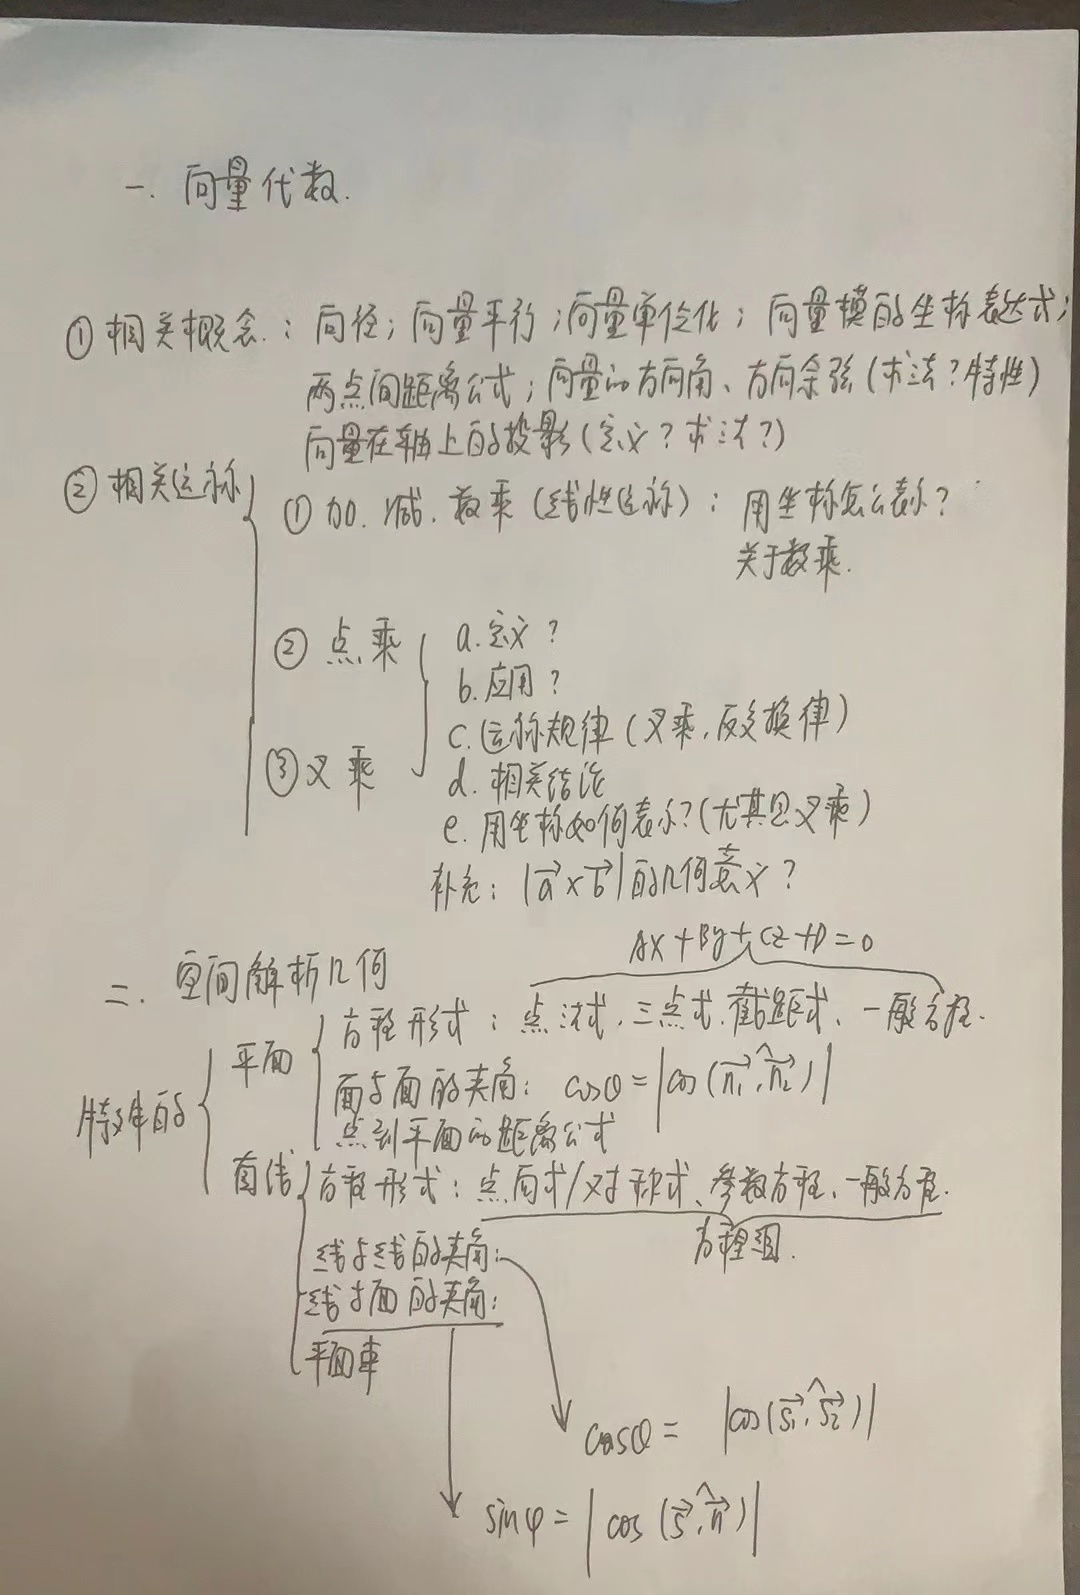 一. 向量代数.
① 相关概念: 向径; 向量平行; 向量单位化; 向量模的坐标表达式;
两点间距离公式; 向量的方向角、方向余弦(求法?特性)
向量在轴上的投影(定义?求法?)
② 相关运算
① 加. 减. 数乘 (线性运算): 用坐标怎么表示?
关于数乘.
② 点乘
③ 叉乘
a. 定义?
b. 应用?
c. 运算规律 (叉乘, 反交换律)
d. 相关结论
e. 用坐标如何表示? (尤其是叉乘)
补充: |a⃗×b⃗| 的几何意义?
二. 空间解析几何
Ax+By+Cz+D=0
特殊的
平面
方程形式: 点法式. 三点式. 截距式、一般方程.
面与面的夹角: cosθ=|cos(n₁⃗,^n₂⃗)|
点到平面的距离公式
直线
方程形式: 点向式/对称式、参数方程、一般方程.
方程组.
线与线的夹角:
线与面的夹角:
平面束
cosθ= |cos(s₁⃗,^s₂⃗)|
sinφ=|cos(s⃗,^n⃗)|